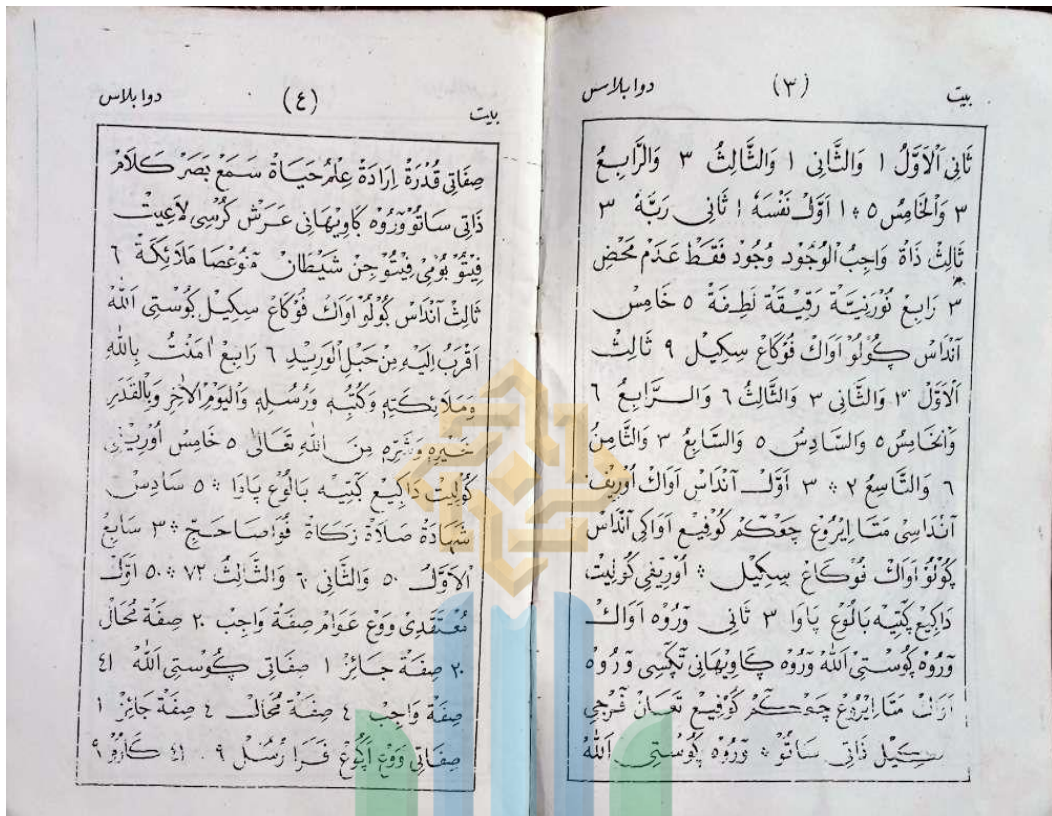 بيت (٣) دوا بلاس
ثَانِي اَلْاَوَّلُ ١ وَالثَّانِى ١ وَالثَّالِثُ ٣ وَالرَّابِعُ
٣ وَالْخَامِسُ ٥ ؞ ١ اَوَّلْ نَفْسَهُ ١ ثَانِى رَبَّهُ ٣
ثَالِثْ ذَاةْ وَاجِبُ الْوُجُوْد وُجُوْد فَقَطْ عَدَمْ مَحْض
٣ رَابِعْ نُوْرَنِيَّةْ رَقِيْقَةْ لَطِيْفَةْ ٥ خَامِسْ
آنْدَاسْ ڮُوْلُوْ اَوَاكْ فُوْڮَاڠْ سِكِيْل ٩ ثَالِثْ
اَلْاَوَّلْ ٣ وَالثَّانِى ٣ وَالثَّالِثُ ٦ وَالـــرَّابِعُ ٦
وَالْخَامِسُ ٥ وَالسَّادِسُ ٥ وَالسَّابِعُ ٣ وَالثَّامِنُ
٦ وَالتَّاسِعُ ٢ ؞ ٣ اَوَّلْ آنْدَاسْ اَوَاكْ اُوْرِيْف
آنْدَاسِى مَتَا اِيْرُوْڠْ چَڠْكَمْ كُوْفِيْڠ اَوَاكِى آنْدَاسْ
ڮُوْلُوْ اَوَاكْ فُوْڮَاڠْ سِكِيْل ؞ اُوْرِيْفِى كُوْلِيْتْ
دَاڮِيْڠ ڮَتِيْه بَالُوْڠ پَاوَا ٣ ثَانِى وَرُوْه اَوَاكْ
وَرُوْه ڮُوْسْتِى اَللهْ وَرُوْه كَاوِيْهَانِى تَكْسِى وَرُوْه
اَوَاكْ مَتَا اِيْرُوْڠْ چَڠْكَمْ كُوْفِيْڠ تَڠَانْ فَرْجِى
سِكِيْل ذَاتِى سَاتُوْ ؞ وَرُوْه ڮُوْسْتِى اَللهْ
بيت (٤) دوا بلاس
صِفَاتِى قُدْرَةْ اِرَادَةْ عِلْمُ حَيَاةْ سَمَعْ بَصَرْ كَلَامْ
ذَاتِى سَاتُوْ وَرُوْه كَاوِيْهَانِى عَرَشْ كُرْسِى لَاڠِيْتْ
فِيْتُوْ بُوْمِى فِيْتُوْ جِنْ شَيْطَانْ مَنُوْڠْصَا مَلَائِكَةْ ٦
ثَالِثْ آنْدَاسْ ڮُوْلُوْ اَوَاكْ فُوْڮَاڠْ سِكِيْل ڮُوْسْتِى اَللهْ
اَقْرَبُ اِلَيْهِ مِنْ حَبْلِ الْوَرِيْدِ ٦ رَابِعْ اٰمَنْتُ بِاللهِ
وَمَلَائِكَتِهِ وَكُتُبِهِ وَرُسُلِهِ وَالْيَوْمِ الْاٰخِرِ وَبِالْقَدَرِ
خَيْرِهِ وَشَرِّهِ مِنَ اللهِ تَعَالٰى ٥ خَامِسْ اُوْرِيْفِى
كُوْلِيْتْ دَاڮِيْڠ ڮَتِيْه بَالُوْڠ پَاوَا ؞ ٥ سَادِسْ
شَهَادَةْ صَلَاةْ زَكَاةْ فُوَاصَا حَجّ ؞ ٣ سَابِعْ
اَلْاَوَّلُ ٥٠ وَالثَّانِى ٦ وَالثَّالِثُ ٧٢ ؞ ٥٠ اَوَّلْ
مُعْتَقَدِى وَوْڠ عَوَامْ صِفَةْ وَاجِبْ ٢٠ صِفَةْ مُحَالْ
٢٠ صِفَةْ جَائِزْ ١ صِفَاتِى ڮُوْسْتِى اَللهْ ٤١
صِفَةْ وَاجِبْ ٤ صِفَةْ مُحَالْ ٤ صِفَةْ جَائِزْ ١
صِفَاتِى وَوْڠ اَڮُوْڠ فَرَا رُسُلْ ٩ ٤١ كَارُوْ ٩